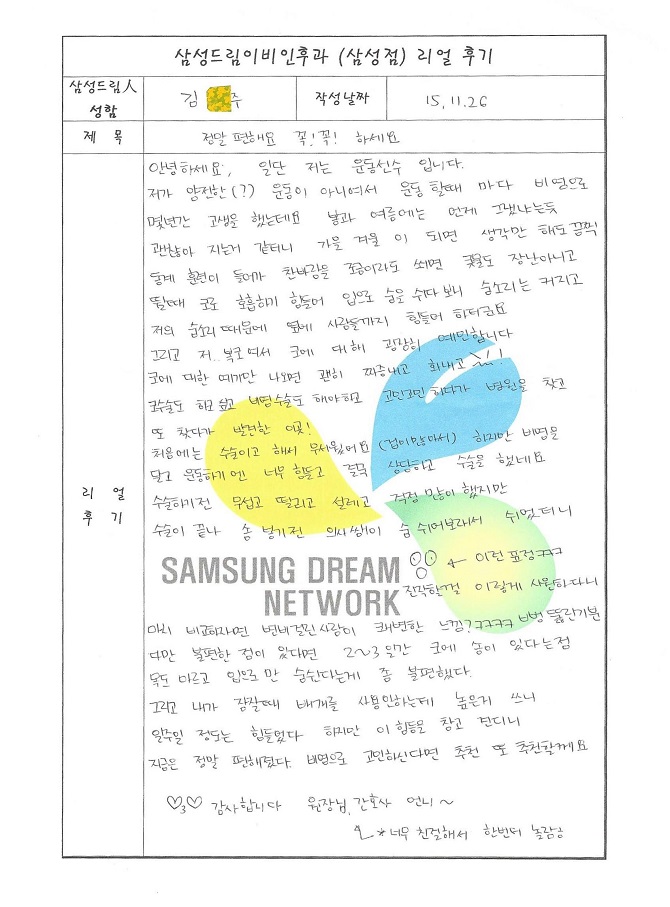 삼성드림이비인후과 (삼성점) 리얼 후기
삼성드림人 성함
김 주
작성날짜
15.11.26
제 목
정말 편해요 꼭! 꼭! 하세요
리 얼
후 기
안녕하세요, 일단 저는 운동선수 입니다.
저가 얌전한(?) 운동이 아니여서 운동 할때 마다 비염으로
몇년간 고생을 했는데요 봄과 여름에는 언제 그랬냐는듯
괜찮아 지는거 같더니 가을 겨울 이 되면 생각만 해도 끔찍
동계 훈련이 들어가 찬바람을 조금이라도 쐬면 콧물도 장난아니고
뛸때 코로 호흡하기 힘들어 입으로 숨을 쉬다 보니 숨소리는 커지고
저의 숨소리 때문에 옆에 사람들까지 힘들어 하더군요
그리고 저 여서 코에 대해 굉장히 예민합니다
코에 대한 얘기만 나오면 괜히 짜증내고 화내고
코수술도 하고 싶고 비염수술도 해야하고 고민고민 하다가 병원을 찾고
또 찾다가 발견한 이곳!
처음에는 수술이고 해서 무서웠어요 (겁이많아서) 하지만 비염을
달고 운동하기엔 너무 힘들고 결국 상담하고 수술을 했네요
수술하기전 무섭고 떨리고 설레고 걱정 많이 했지만
수술이 끝나 솜 넣기전 의사쌤이 숨 쉬어보라해서 쉬었더니
← 이런 표정ㅋㅋㅋ
SAMSUNG DREAM
NETWORK
진작할껄 이렇게 시원하다니
마치 비교하자면 변비걸린사람이 쾌변한 느낌?ㅋㅋㅋㅋ 뻥 뚫린기분
다만 불편한 점이 있다면 2~3일간 코에 솜이 있다는점
목도 마르고 입으로 만 숨쉰다는게 좀 불편했다.
그리고 내가 잠잘때 베개를 사용안하는데 높은거 쓰니
일주일 정도는 힘들었다 하지만 이 힘듦을 참고 견디니
지금은 정말 편해졌다. 비염으로 고민하신다면 추천 또 추천할께요
♡3♡ 감사합니다 원장님, 간호사 언니~
*너무 친절해서 한번더 놀람